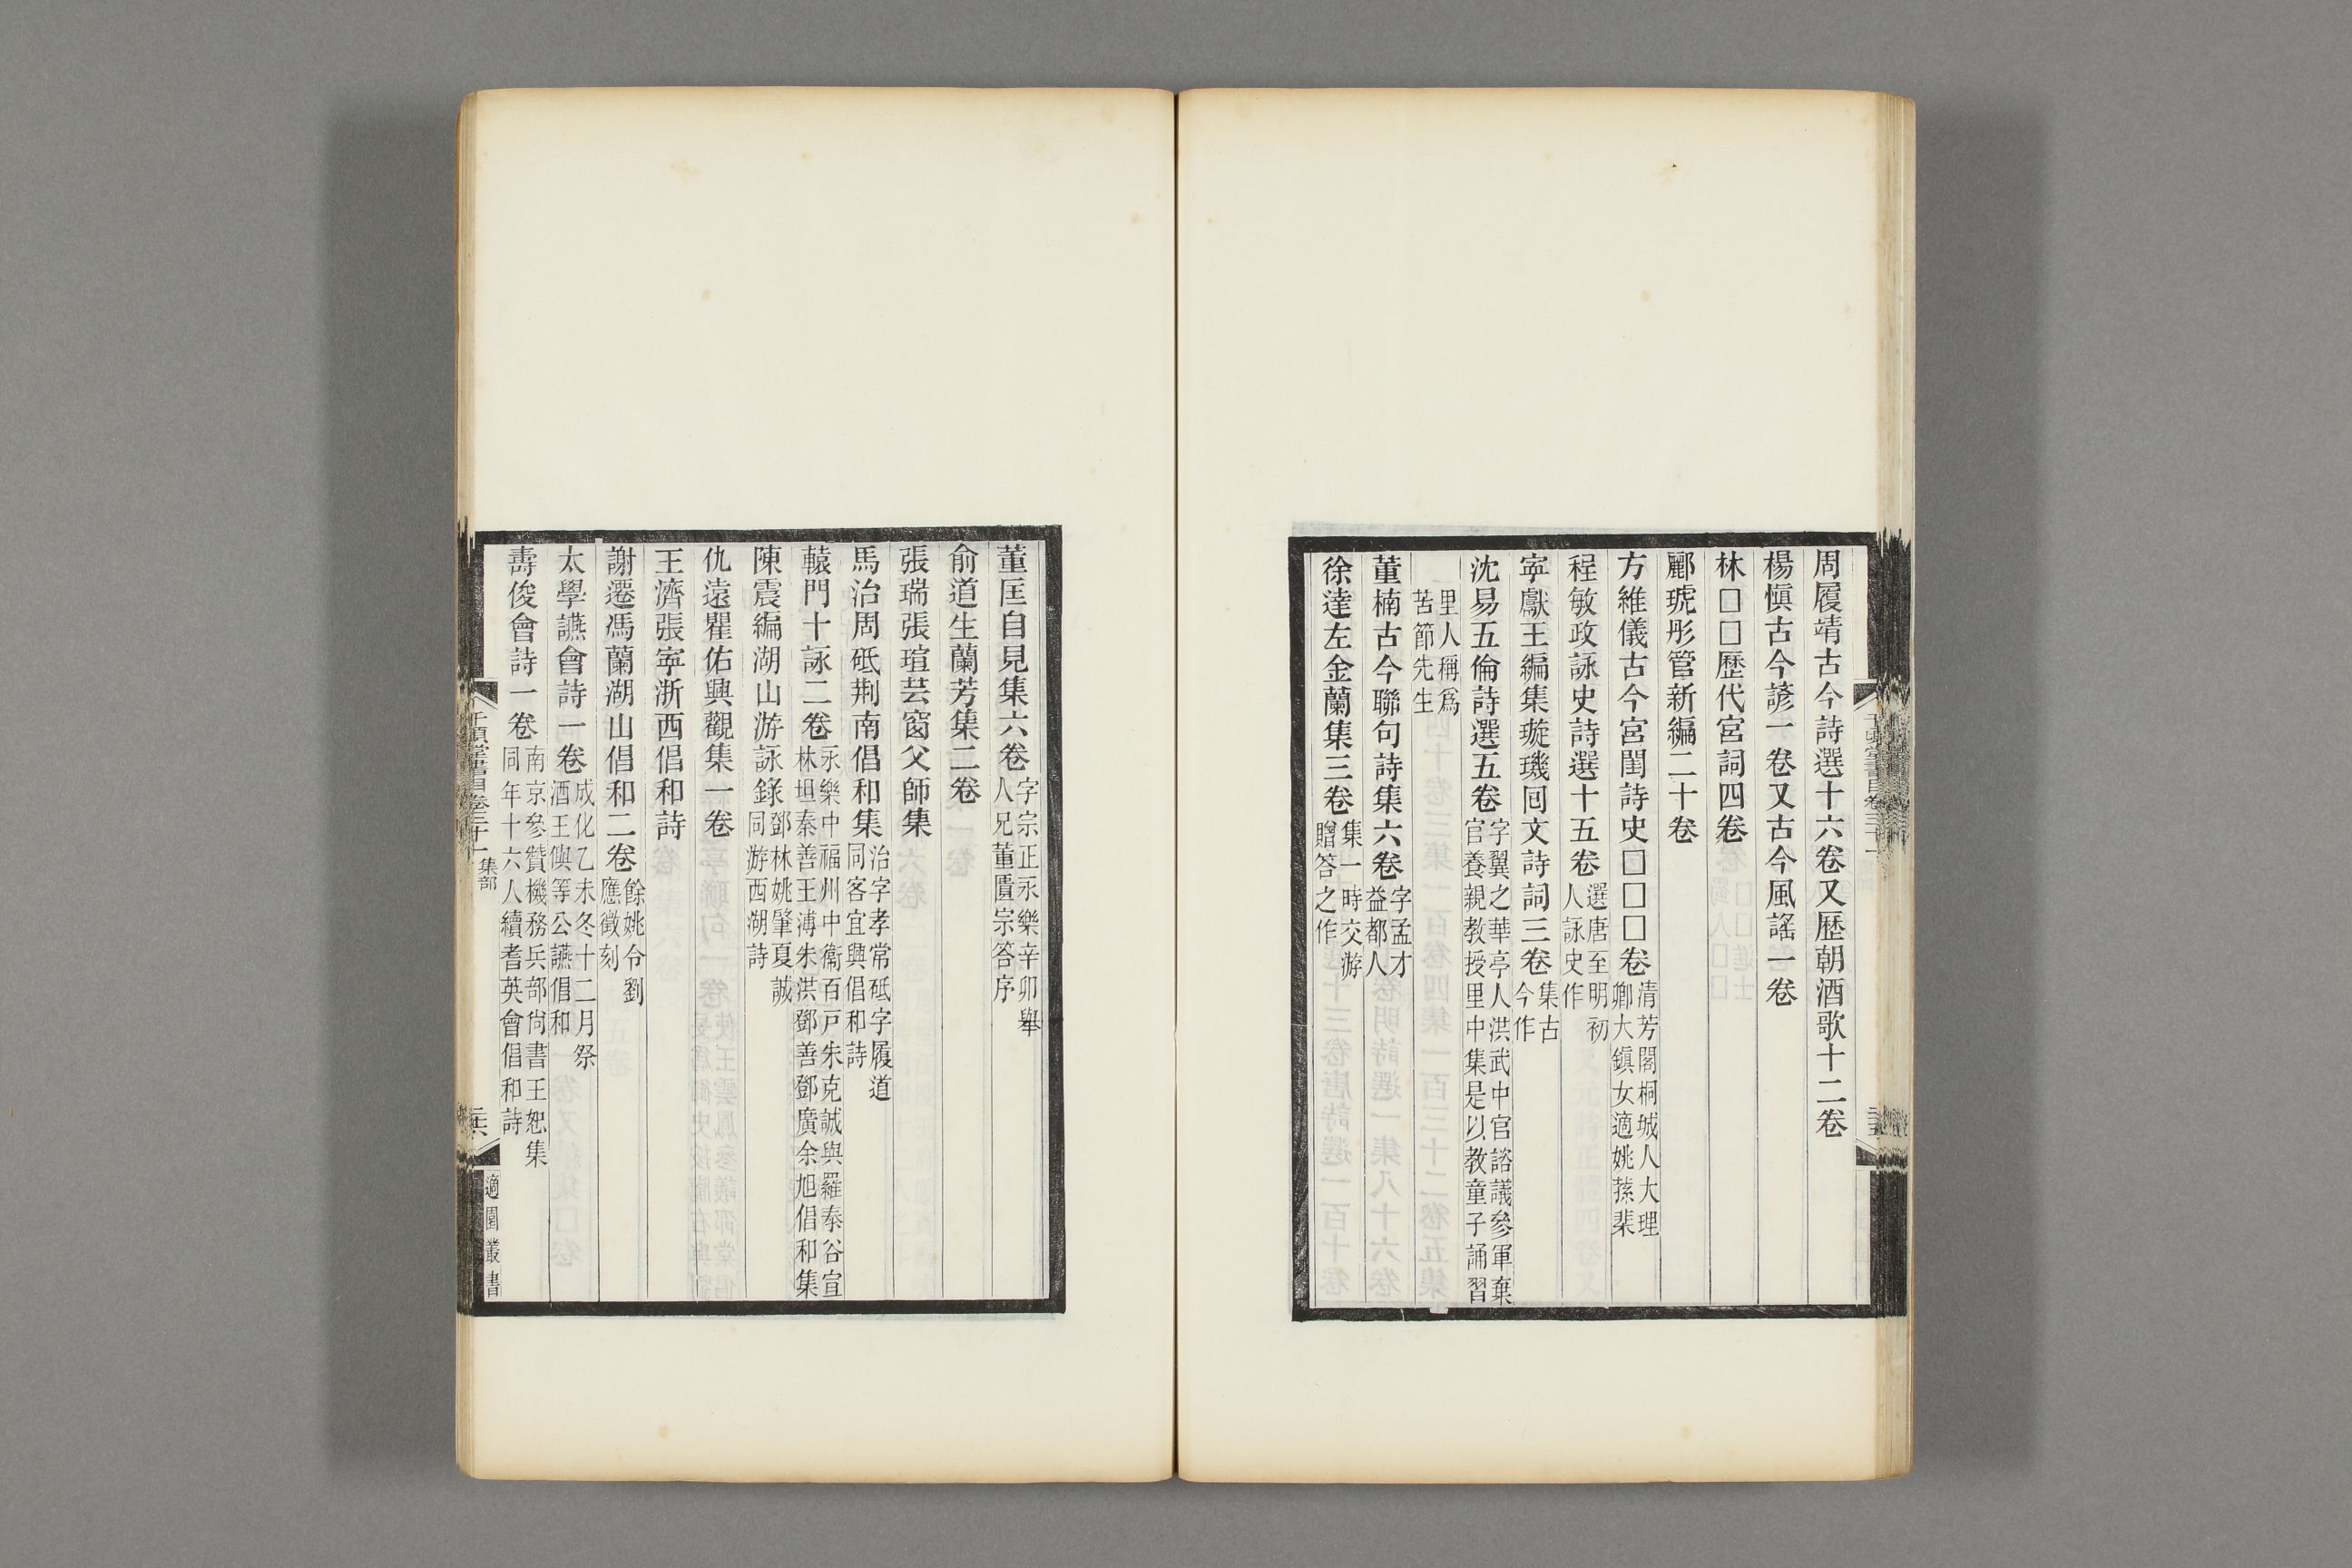 周履靖古今詩選十六卷又歷朝酒歌十二卷
楊慎古今諺一卷又古今風謠一卷
林□□歷代宮詞四卷
酈琥彤管新編二十卷
方維儀古今宮閨詩史□□□卷清芳閣桐城人大理卿大鎮女適姚蓀棐
程敏政詠史詩選十五卷選唐至明初人詠史作
寧獻王編集璇璣回文詩詞三卷集古今作
沈易五倫詩選五卷字翼之華亭人洪武中官諮議參軍棄官養親教授里中集是以教童子誦習
里人稱爲苦節先生
董楠古今聯句詩集六卷字孟才益都人
徐達左金蘭集三卷集一時交游贈答之作
董匡自見集六卷字宗正永樂辛卯舉人兄董匱宗答序
俞道生蘭芳集二卷
張瑞張瑄芸窗父師集
馬治周砥荆南倡和集治字孝常砥字履道同客宜興倡和詩
轅門十詠二卷永樂中福州中衞百戸朱克誠與羅泰谷宣林坦秦善王溥朱洪鄧善鄧廣余旭倡和集
陳震編湖山游詠錄鄧林姚肇夏誠同游西湖詩
仇遠瞿佑興觀集一卷
王濟張寧浙西倡和詩
謝遷馮蘭湖山倡和二卷餘姚令劉應徵刻
太學讌會詩一卷成化乙未冬十二月祭酒王㒜等公讌倡和
壽俊會詩一卷南京參贊機務兵部尚書王恕集同年十六人續耆英會倡和詩
千頃堂書目卷三十一 集部
適園叢書